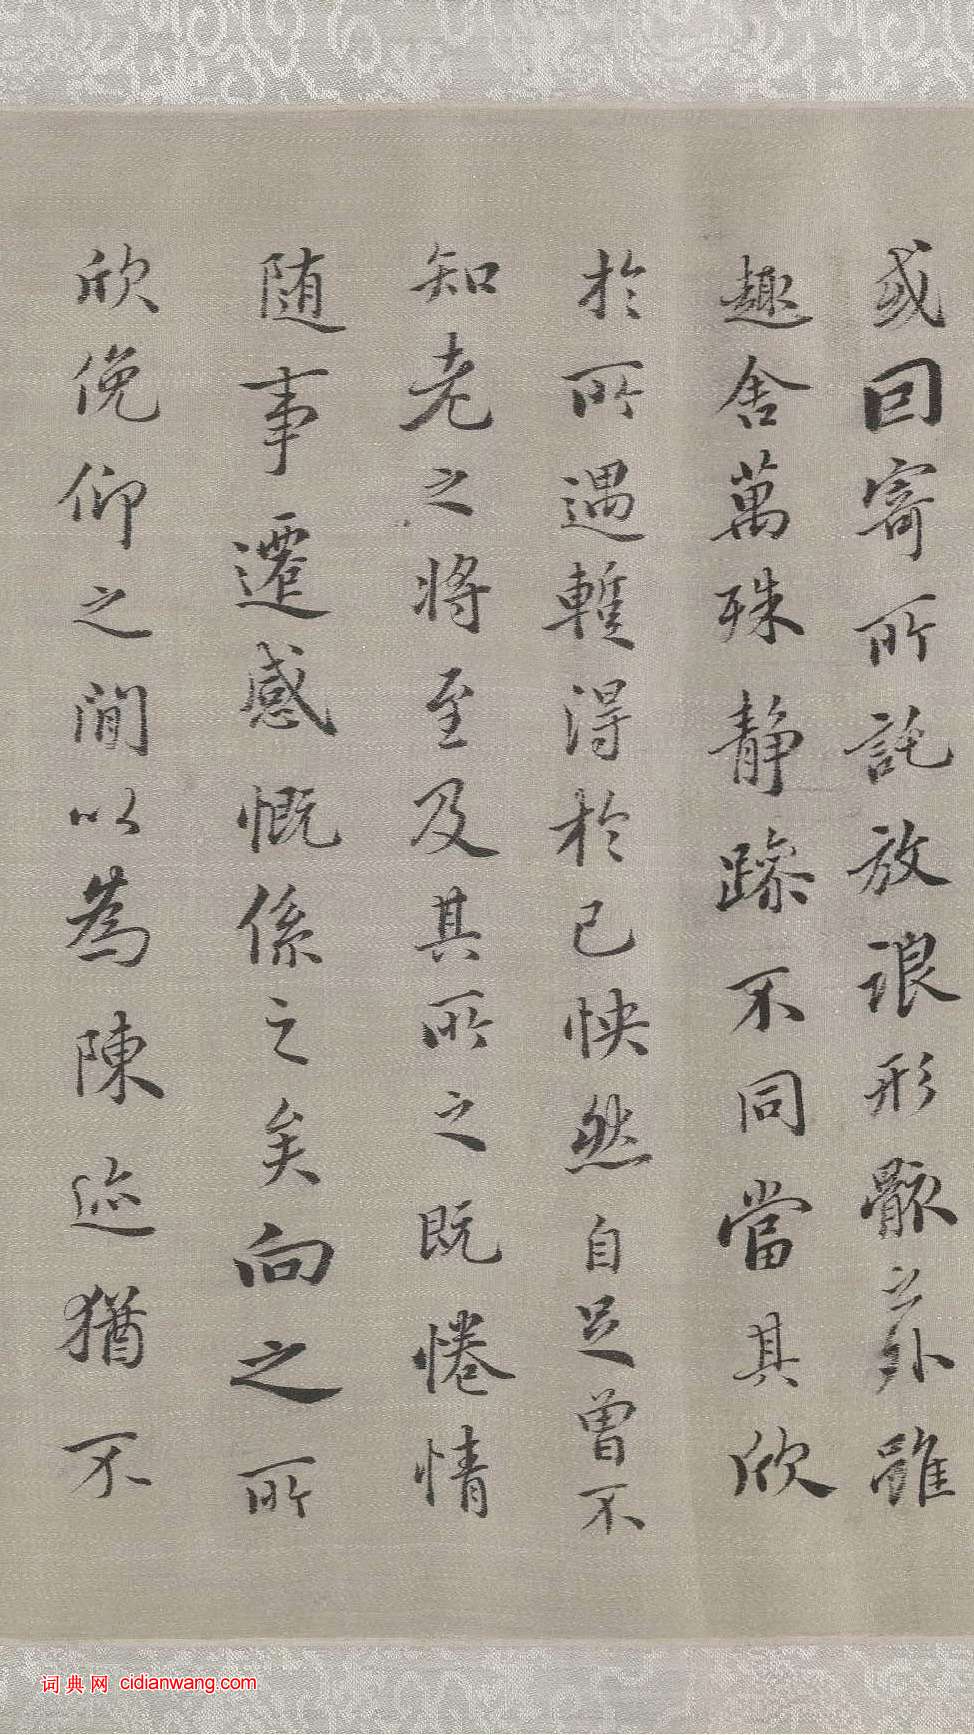 或因寄所託放浪形骸之外雖
趣舍萬殊静躁不同當其欣
於所遇蹔得於己怏然自足曾不
知老之將至及其所之既惓情
随事遷感慨係之矣向之所
欣俛仰之間以為陳迹猶不
词典网 cidianwang.com